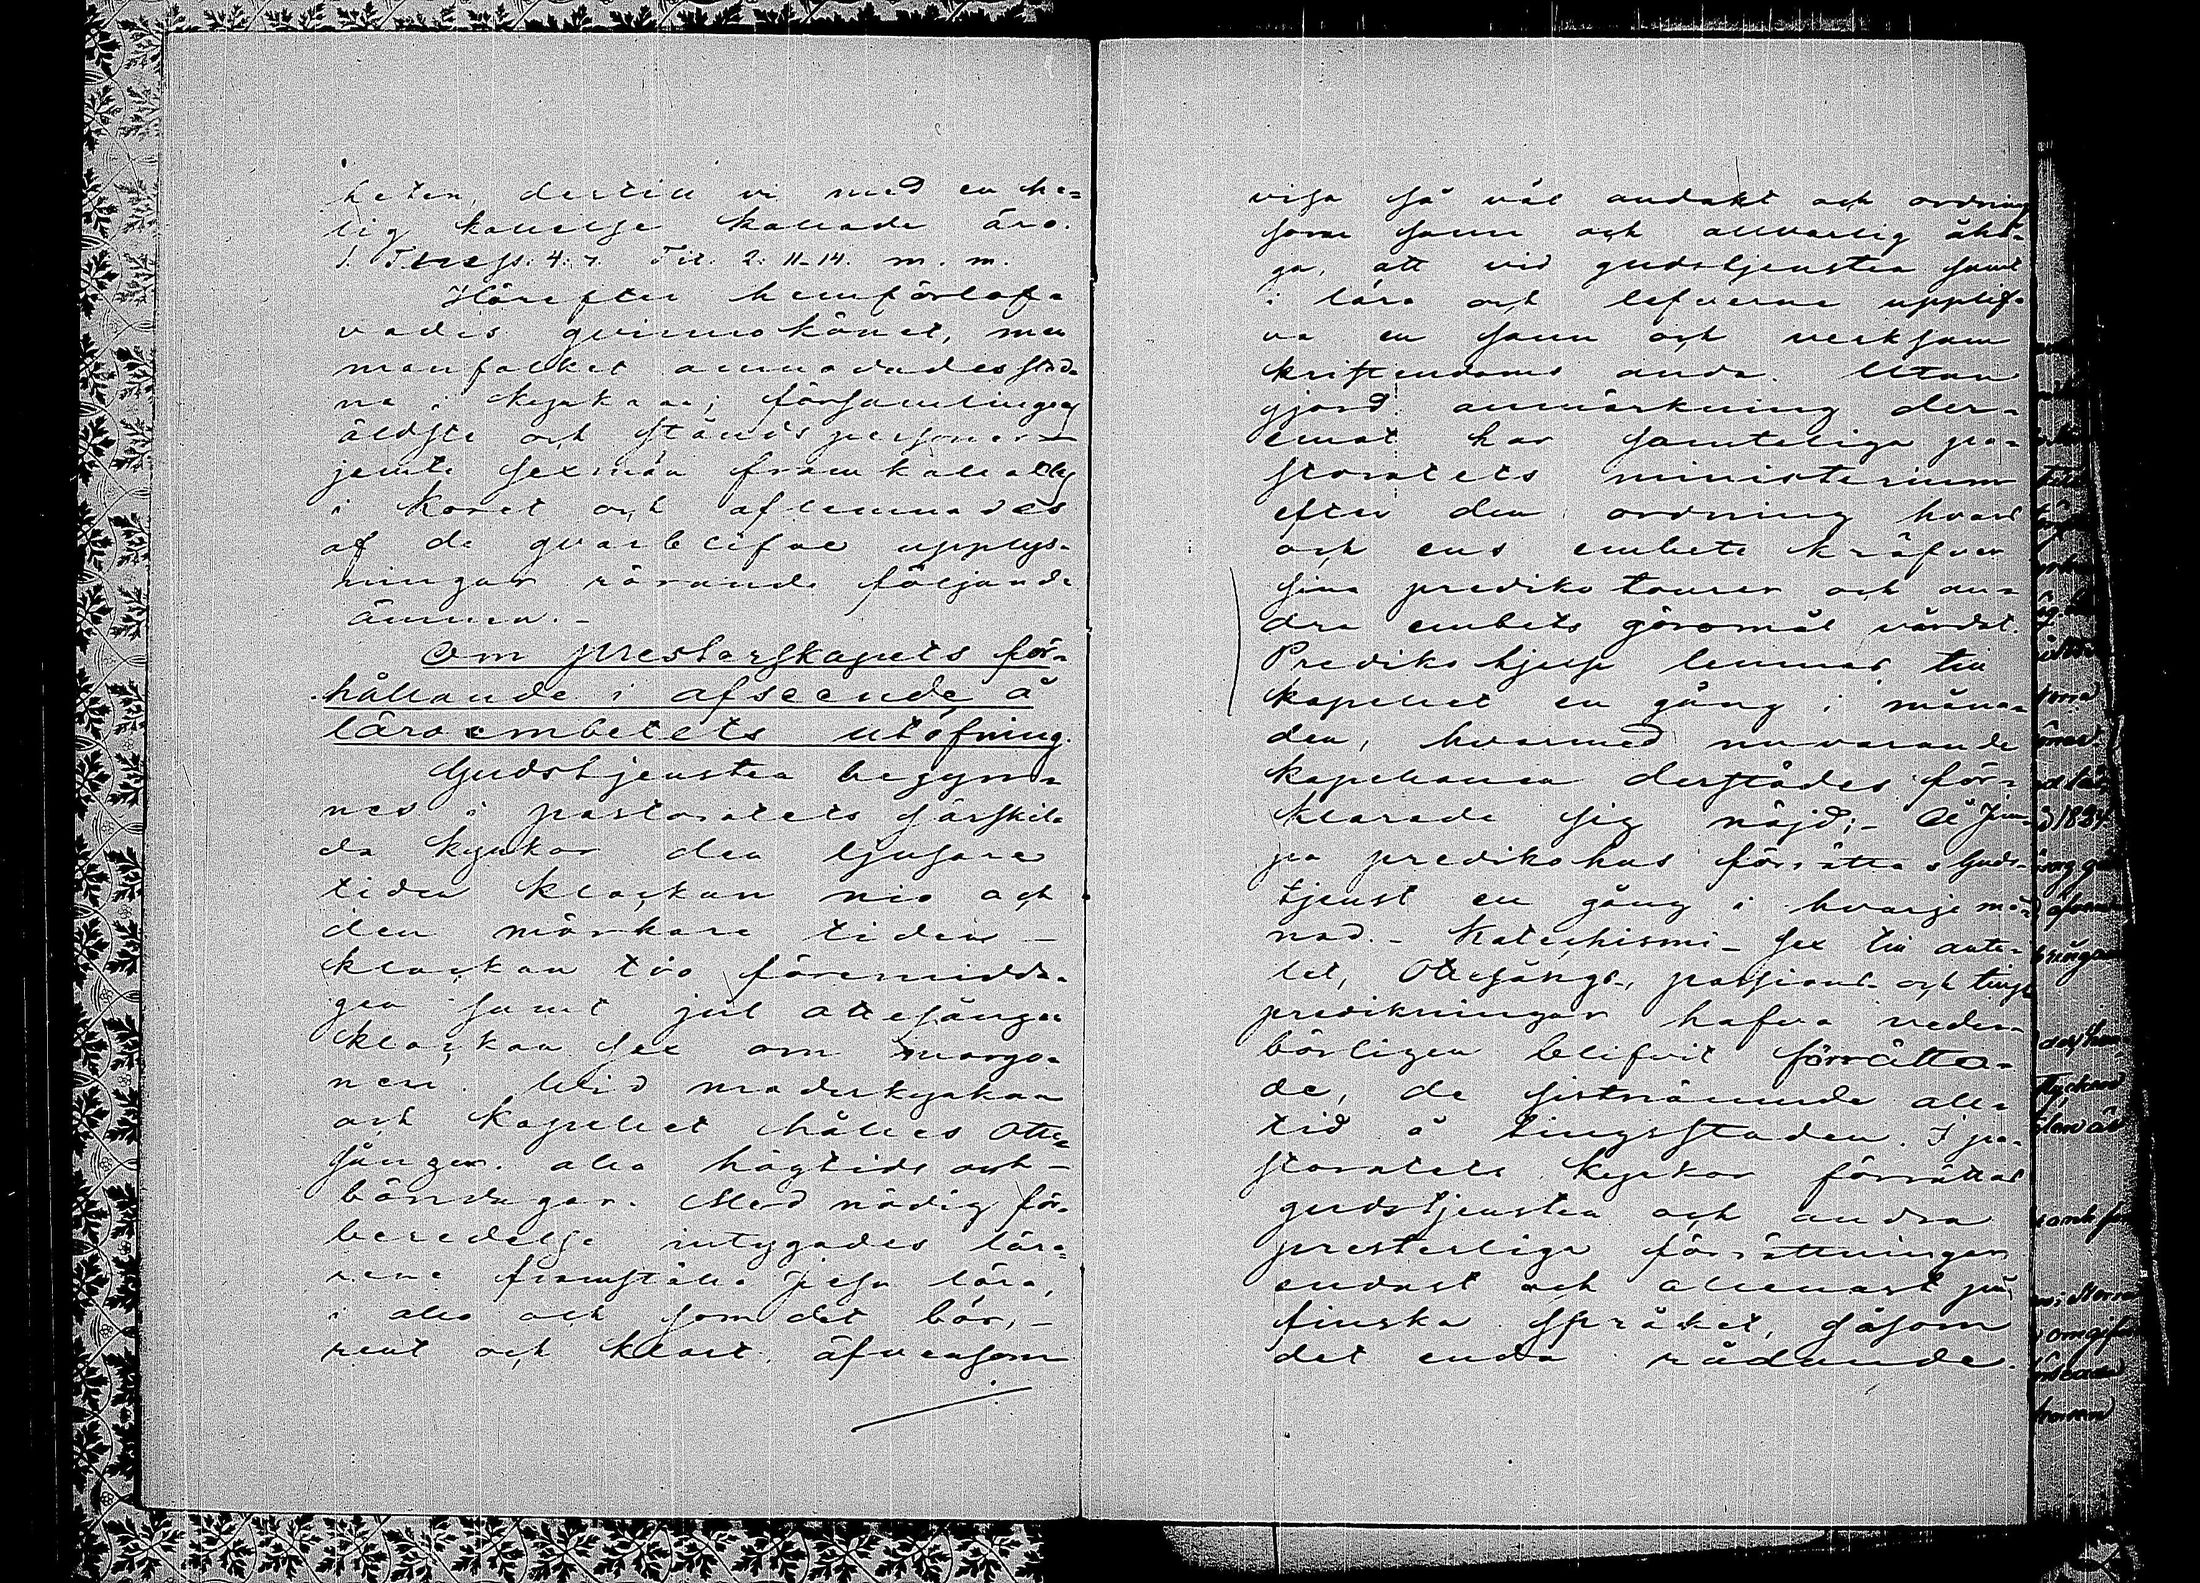 heten, dertill vi med en he=
lig kallelse kallade äro.
1. Thess. 4: 7. Tit. 2: 11-14. m. m.
Härefter hemförlof=
vades qvinnokönet, men
manfolket anmodades stad=
na i kyrkan; församlingens
äldste och ståndspersoner
jemte sexmän framkallades
i koret och aflemnades
af de qvarblifne upplys=
ningar rörande följande
ämnen.-
Om presterskapets för=
hållande i afseende å
läroembetets utöfning.
Gudstjensten begyn=
nes i pastoratets särskil=
da kyrkor den ljusare
tiden klockan nio och
den mörkare tiden -
klockan tio förmidda=
gen samt jul ottesången
klockan sex om morgo=
nen. Uti moderkyrkan
och kapellet hålles Otte=
sången alla högtids och -
böndagar. Med nödig för=
beredelse intygades lära=
rene framställa Jesu lära,
i allo och som det bör, -
rent och klart, äfvensom
visa så väl andakt och ordning
som sann och allvarlig åhå=
ga, att vid gudstjensten samt
i lära och lefverne upplif=
va en sann och verksam
kristendoms anda. Utan
gjord anmärkning der=
emot har samtelige pa=
storatets ministerium
efter den ordning hvars
och ens embete kräfver
sina prediko tourer och an=
dra embets göromål vårdat.
Prediko hjelp lemnas till
kapellet en gång i måna=
den, hvarmed nuvarande
kapellanen derstädes för=
klarade sig nöjd;- Å Jim=
pa predikohus förrättas Guds=
tjenst en gång i hvarje må=
nad.- Katechismi- sex till anta=
let, Ottesångs-, passions- och tings
predikningar hafva veder=
börligen blifvit förrätta=
de, de sistnämnde all=
tid å tingsstaden. I pa=
storatets kyrkor förrättas
gudstjensten och andra
presterliga förrättningar
endast och allenast på
finska språket, såsom
det enda rådande.